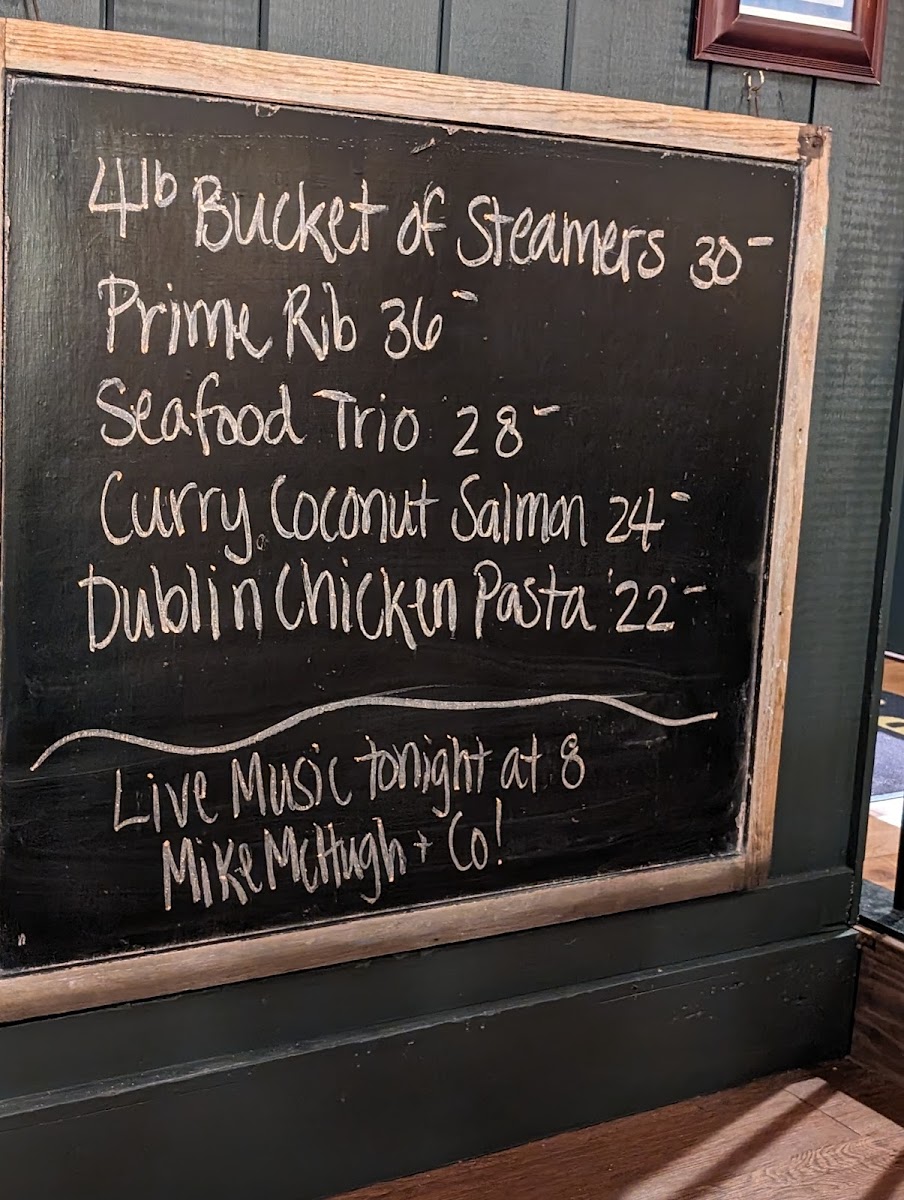 4lb Bucket of Steamers 30-
Prime Rib 36-
Seafood Trio 28-
Curry Coconut Salmon 24-
Dublin Chicken Pasta 22-
Live Music tonight at 8
Mike McHugh + Co!